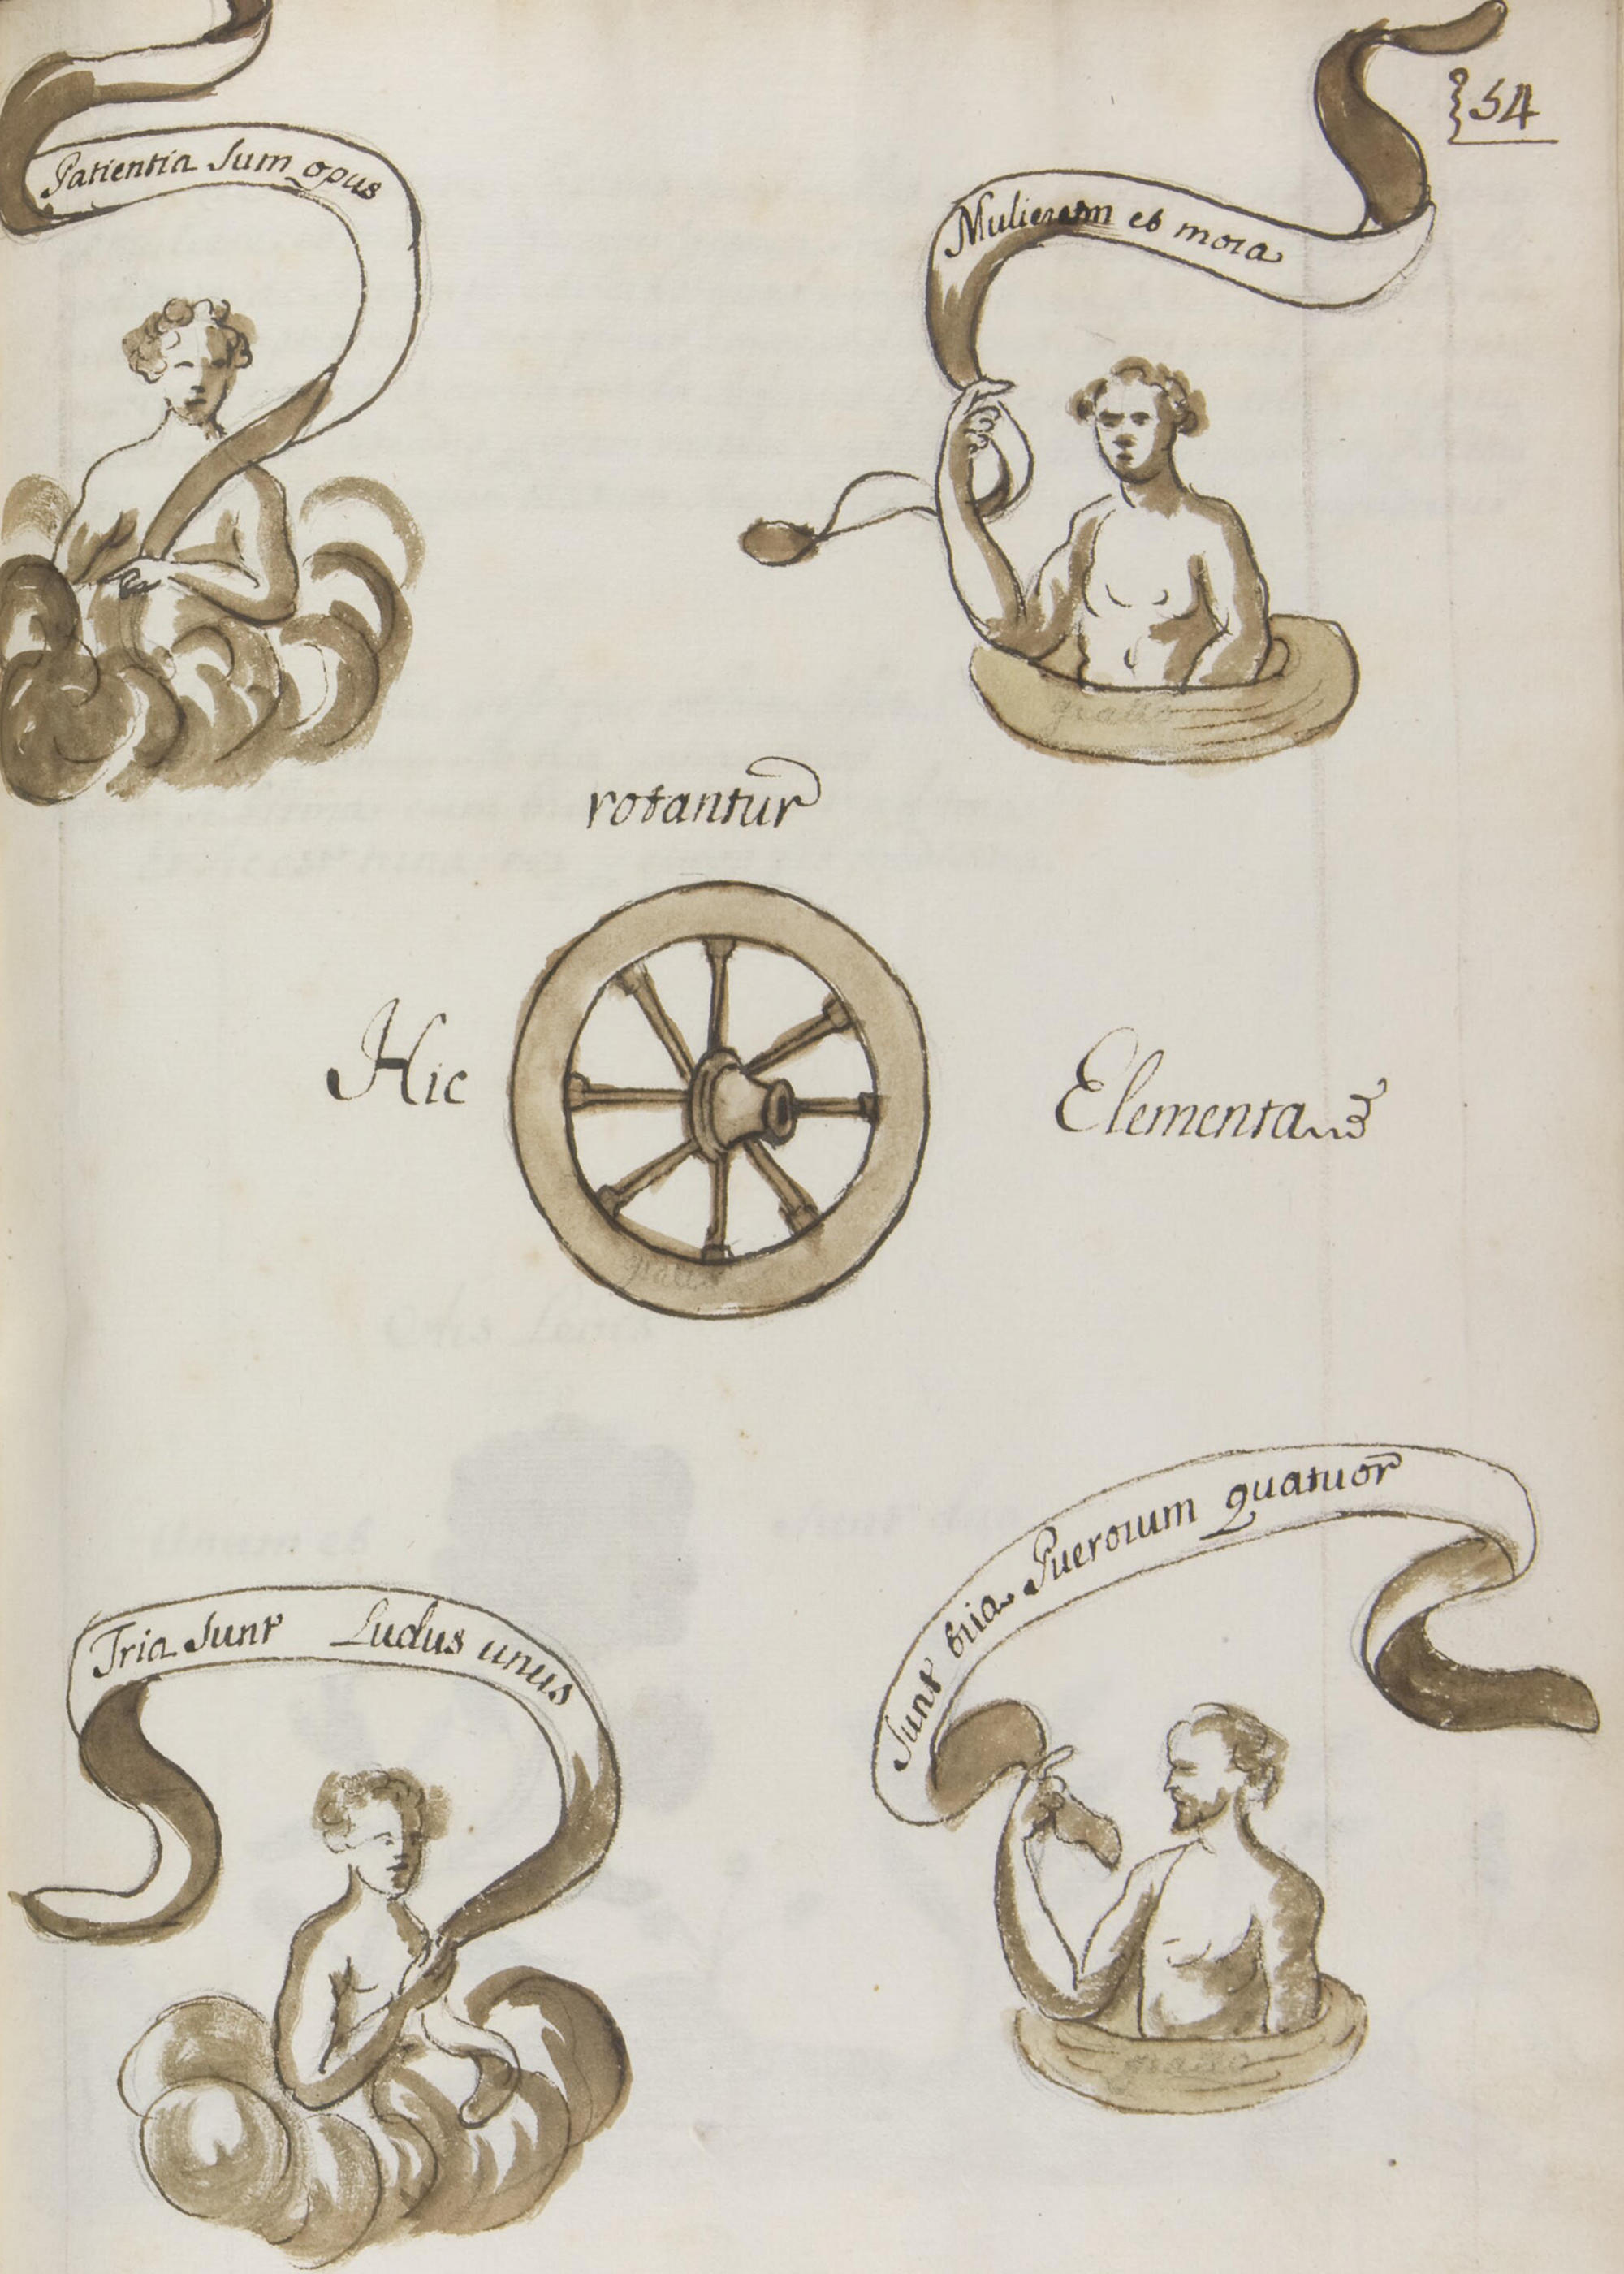 54
Patientia Sum opus
Mulierum et mora
rotantur
Hic
Elementa
giallo
giallo
Tria Sunt Ludus unus
Sunt tria Puerorum quatuor
giallo